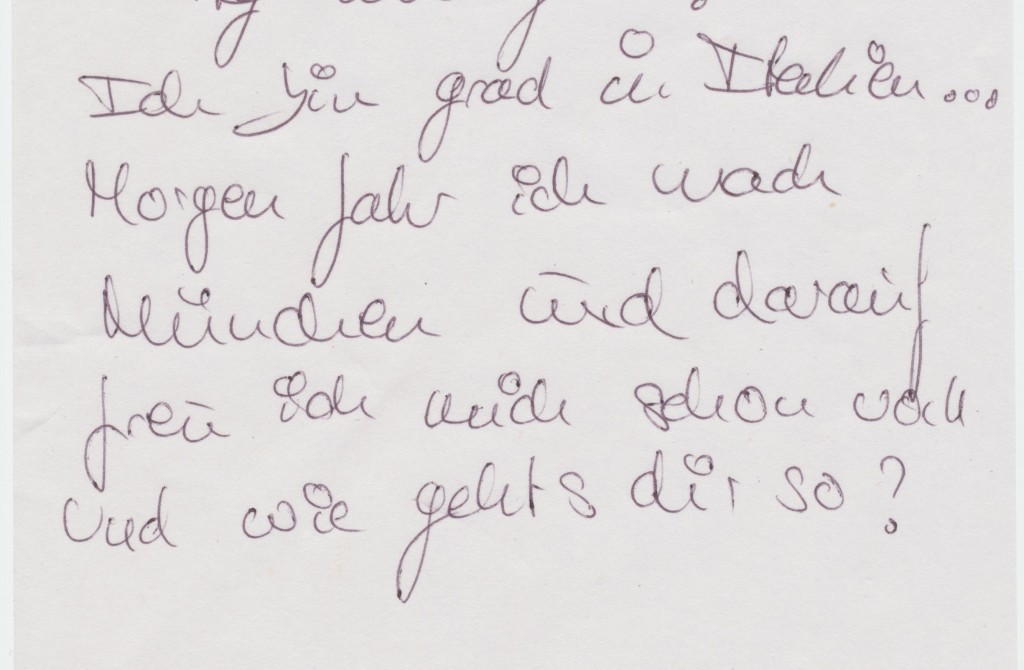 Ich bin grad in Italien...
Morgen fahr ich nach
München und darauf
freu ich mich schon voll
Und wie gehts dir so?